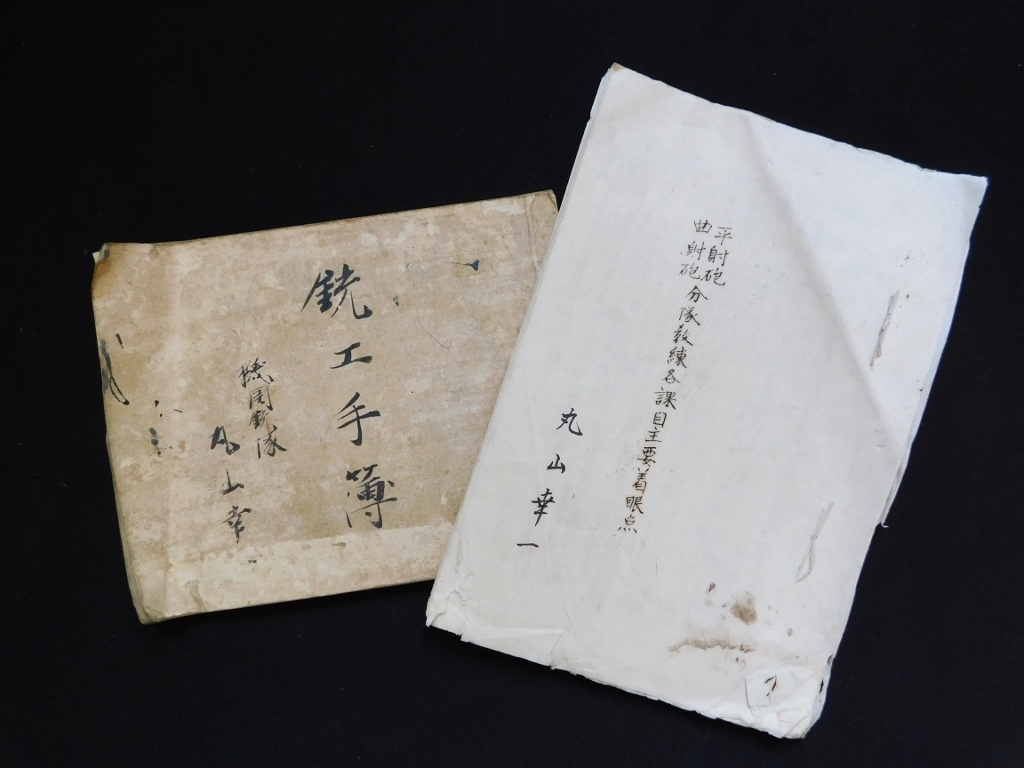 銃工手簿
機関銃隊
丸山幸一
平射砲
曲射砲分隊教練各課目主要着眼点
丸山幸一